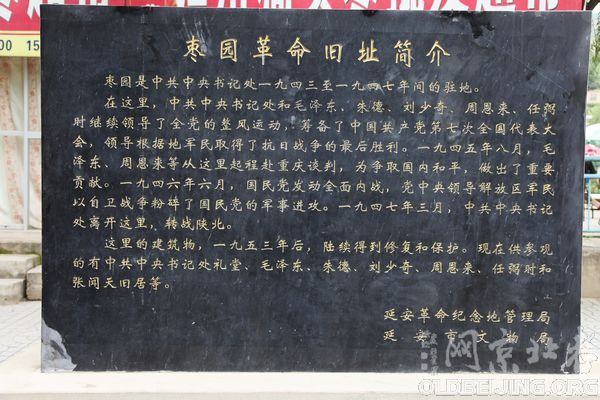 00 15
枣园革命旧址简介
枣园是中共中央书记处一九四三至一九四七年间的驻地。
在这里，中共中央书记处和毛泽东、朱德、刘少奇、周恩来、任弼
时继续领导了全党的整风运动，筹备了中国共产党第七次全国代表大
会，领导根据地军民取得了抗日战争的最后胜利。一九四五年八月，毛
泽东、周恩来等从这里起程赴重庆谈判，为争取国内和平，做出了重要
贡献。一九四六年六月，国民党发动全面内战，党中央领导解放区军民
以自卫战争粉碎了国民党的军事进攻。一九四七年三月，中共中央书记
处离开这里，转战陕北。
这里的建筑物，一九五三年后，陆续得到修复和保护。现在供参观
的有中共中央书记处礼堂、毛泽东、朱德、刘少奇、周恩来、任弼时和
张闻天旧居等。
延安革命纪念地管理局
延安市文物局
网京北老
OLDBEIJING.ORG